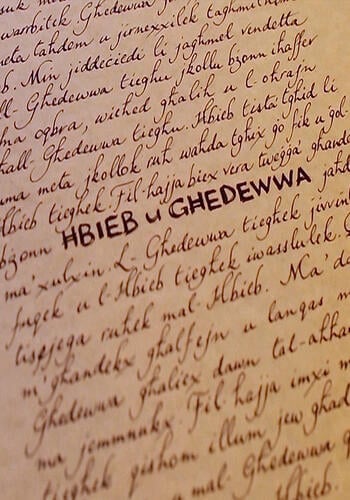 suk
warrbitek Ghedewwa
meta tahdem u jirnexxilek taghmilhom
b. Min jiddeciedi li jaghmel vendetta
ll-Ghedewwa tieghu jkollu bzonn ihaffer
ma oqbra, wiehed ghalih u l-ohrajn
hall-Ghedewwa tieghu. Hbieb tista' tghid li
uma meta jkollok ruh wahda tghix go fik u gol-
Hbieb tieghek. Fil-hajja biex vera twegga' ghandek
bzonn HBIEB u GHEDEWWA
ma' xulxin. L-Ghedewwa tieghek
fuqek u l-Hbieb tieghek iwasslulek.
tispjega ruhek mal-Hbieb. Ma'
m'ghandekx ghalfejn u lanqas
Ghedewwa ghaliex dawn tal-ahhar
ma jemmnukx. Fil-hajja imxi
tieghek qishom illum jew ghada
mal-Ghedewwa
Hbieb.